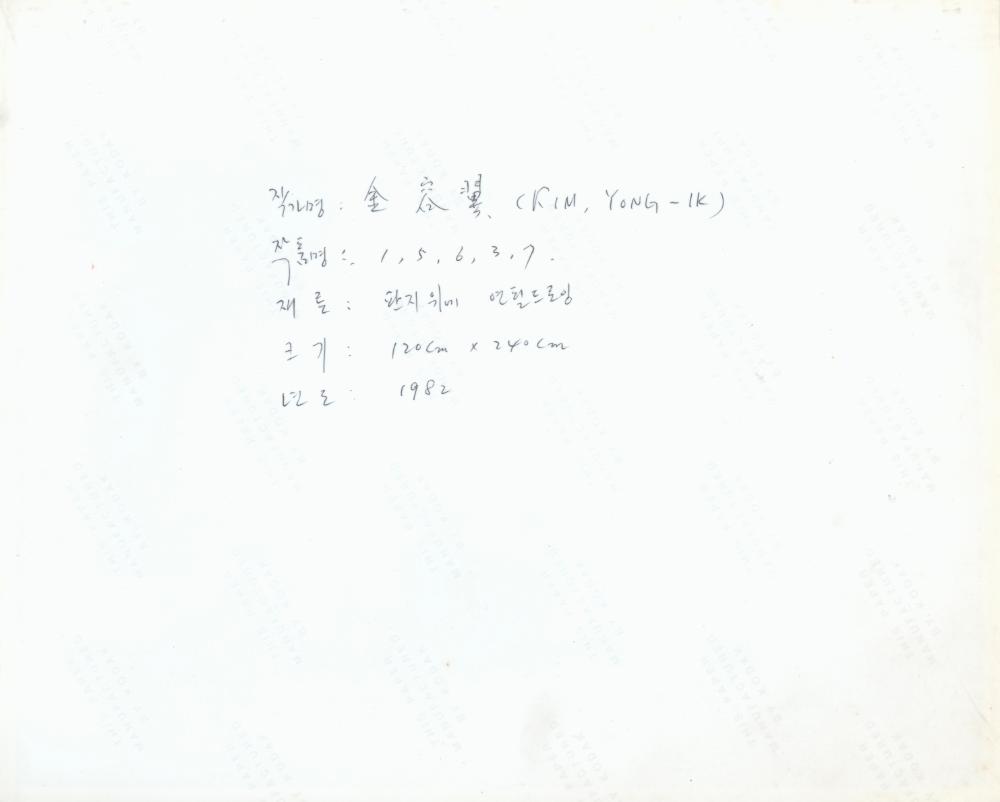 작가명 : 金 容 翼. (KIM, YONG-IK)
작품명 : 1, 5, 6, 3, 7.
재 료 : 판지위에 연필드로잉
크 기 : 120cm x 240cm
년 도 : 1982
THIS PAPER
MANUFACTURED
BY KODAK